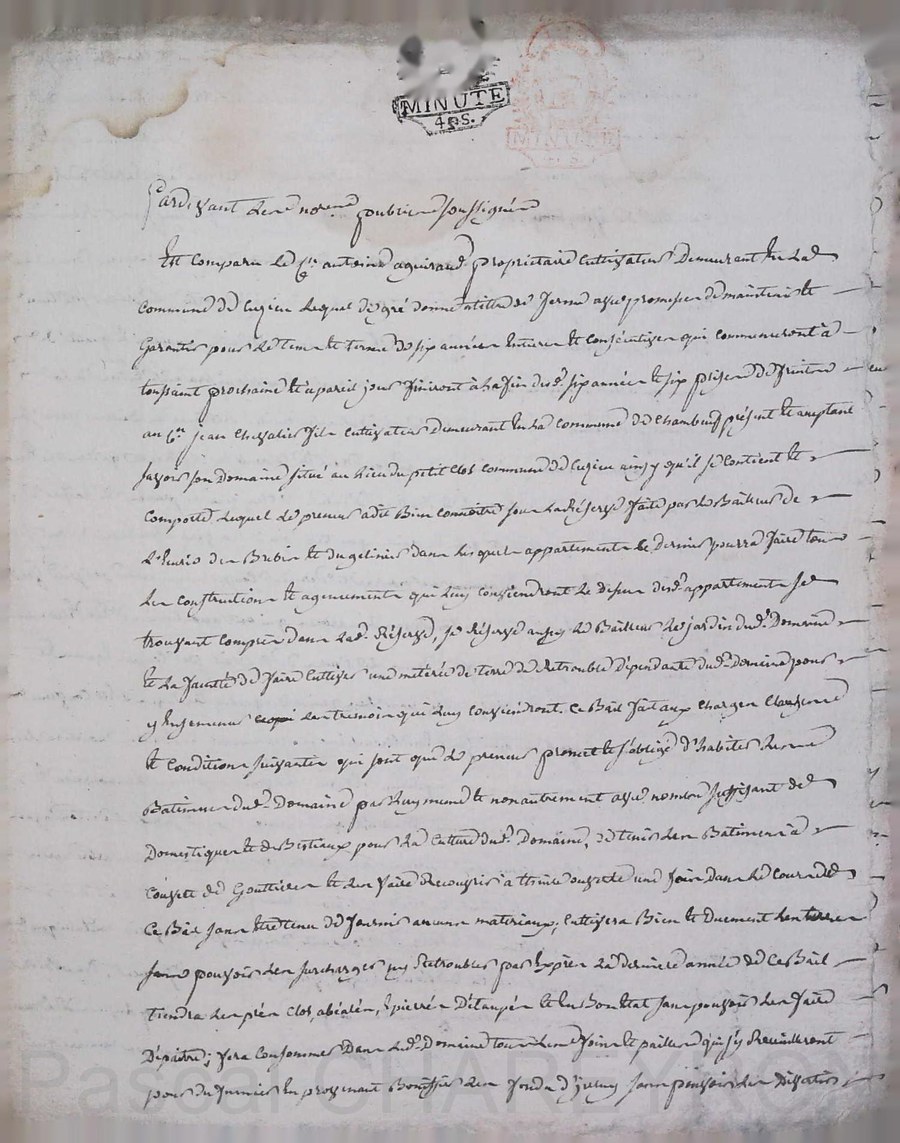 MINUTE
4 D S.
MINUTE
Pardevant les nores publics soussignés
Est comparu le Cen antoine aguiraud propriétaire cultivateur demeurant en la
commune de Cuzieu lequel de gré donne à titre de ferme avec promesse de maintenir et
garantir pour le tems et terme de six années entieres et consécutives qui commenceront à
toussaint prochaine et à pareil jour finiront à la fin desd. six années et six prises de fruits
au Cen jean Chevalier fils cultivateur demeurant en la commune de Chambeuf présent et acceptant
savoir son domaine situé au lieu du petit Clos commune de Cuzieu ainsy qu'il se contient et
comporte lequel le preneur a dit bien connoitre sous la réserve faite par le Bailleur de
l'Ecurie des Brebis et du gelinier dans lesquels appartements ce dernier pourra faire tous
les constructions et agencements qui luy conviendront le dessus desd. appartements se
trouvant compris dans lad. réserve, se réserve aussy le Bailleur le jardin dud. Domaine
et la faculté de faire cultiver une métérée de terre de Retrouble dépendante dud. Domaine pour
y ensemencer les tremois qui luy conviendront. Ce Bail fait aux charges clauses
et conditions suivantes qui sont que le preneur promet et s'oblige d'habiter les
Batiments dud. Domaine par luy meme et non autrement avec nombre suffisant de
Domestiques et de Bestiaux pour la culture dud. Domaine, de tenir les Batiments à
couvert de Gouttieres et les faire recouvrir à thuile ouverte une fois dans le cours de
Ce Bail sans être tenu de fournir aucuns materiaux; cultivera Bien et duement les terres
sans pouvoir les surcharger ny Retroubler par exprès la derniere année de Ce Bail
tiendra les prés clos, abéalés, épierrés Détaupés et en Bon état sans pouvoir les faire
Dépaitre; fera consommer dans led. Domaine tous les foins et pailles qui s'y Recueilleront
pour du fumier en provenant Bonifier les fonds d'iceluy sans pouvoir les Divertir
Pascal CHAREYRON